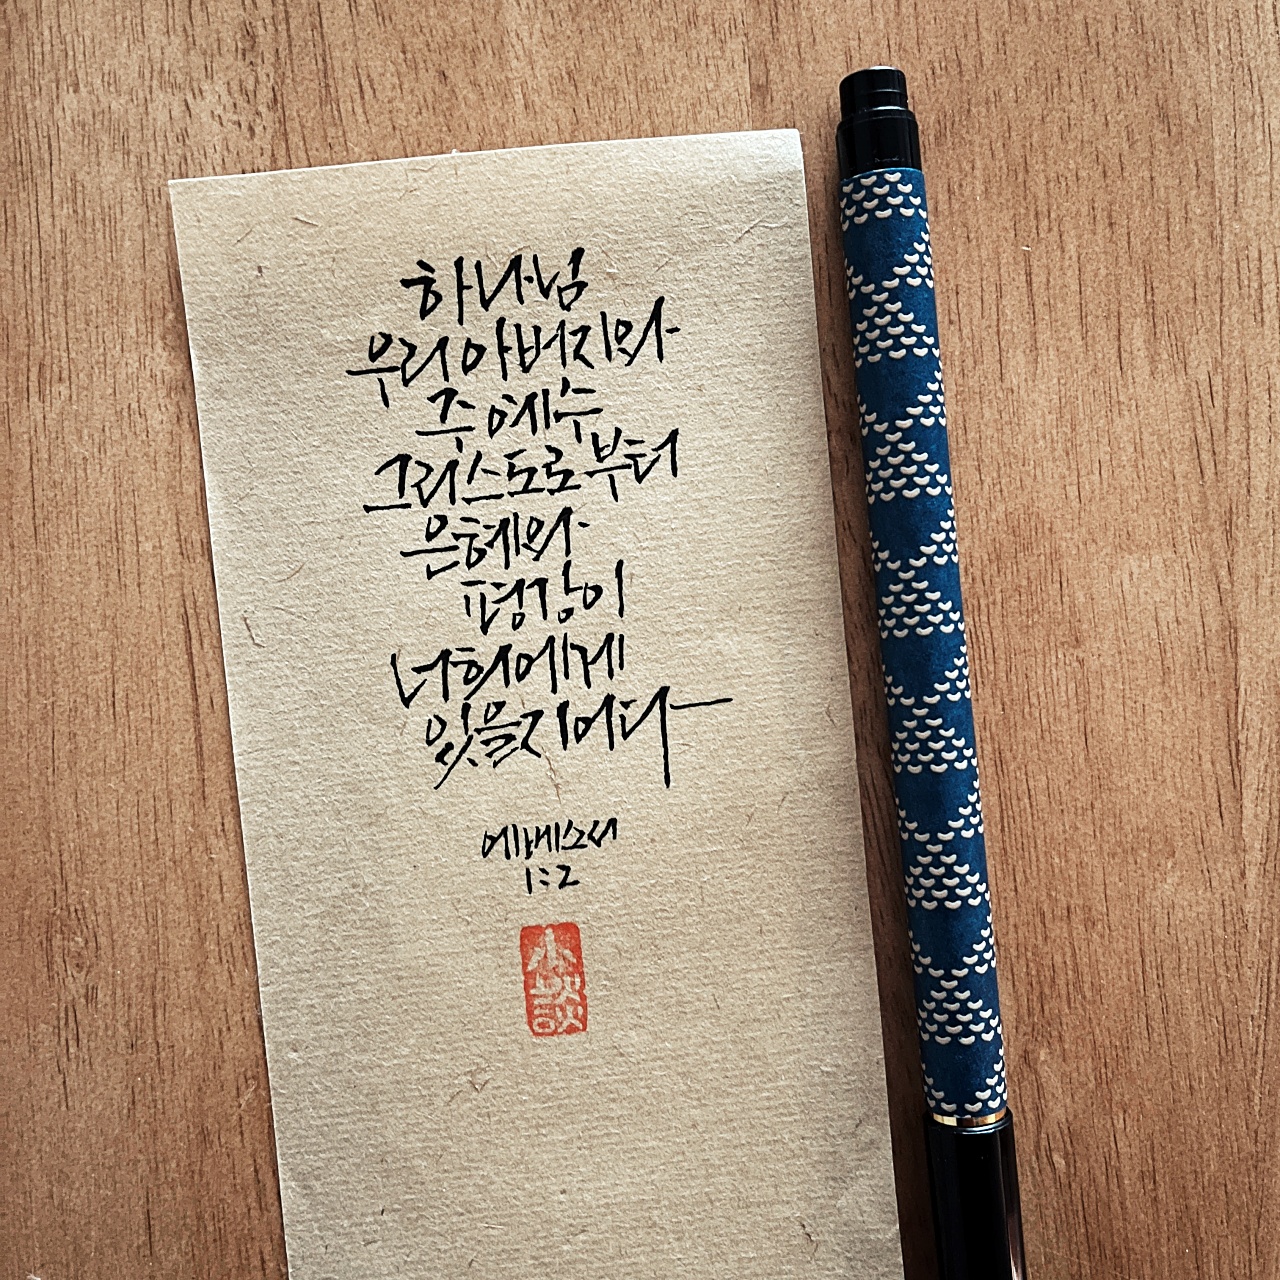 하나님
우리 아버지와
주 예수
그리스도로부터
은혜와
평강이
너희에게
있을지어다
에베소서
1:2